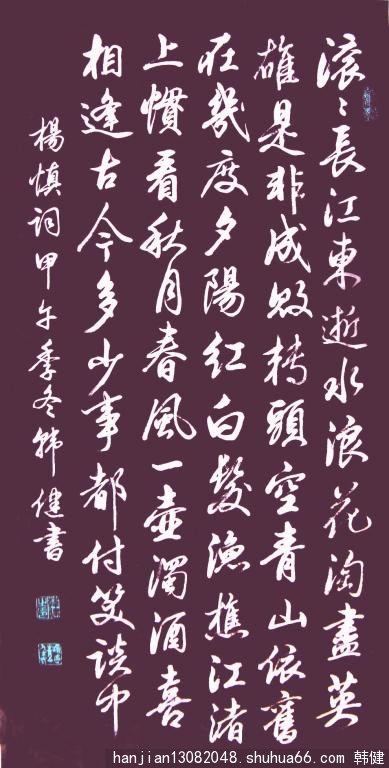 滚〻長江東逝水浪花淘盡英
雄是非成敗轉頭空青山依舊
在幾度夕陽紅白髮漁樵江渚
上慣看秋月春風一壺濁酒喜
相逢古今多少事都付笑談中
楊慎詞甲午季冬韩健書
hanjian13082048.shuhua66.com 韩健